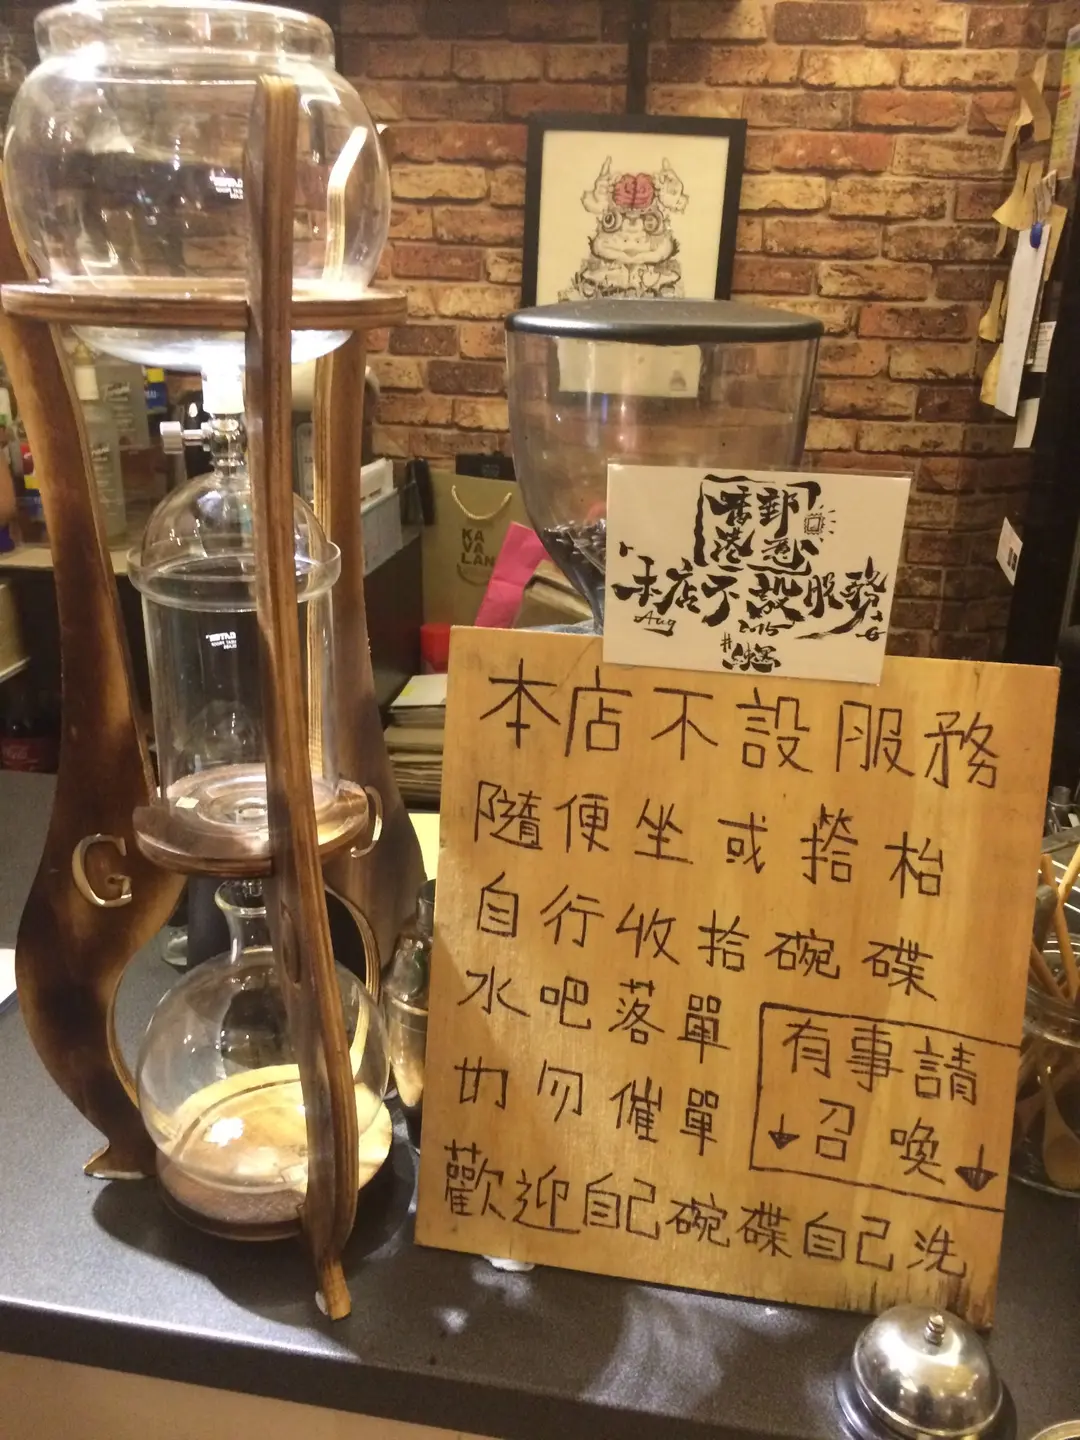 KA
VA
LAN
香 郵
港 惹
本店不設服務
Aug
2015
本店不設服務
隨便坐或撘枱
自行收拾碗碟
水吧落單
有事請
召喚
勿催單
歡迎自己碗碟自己洗
G